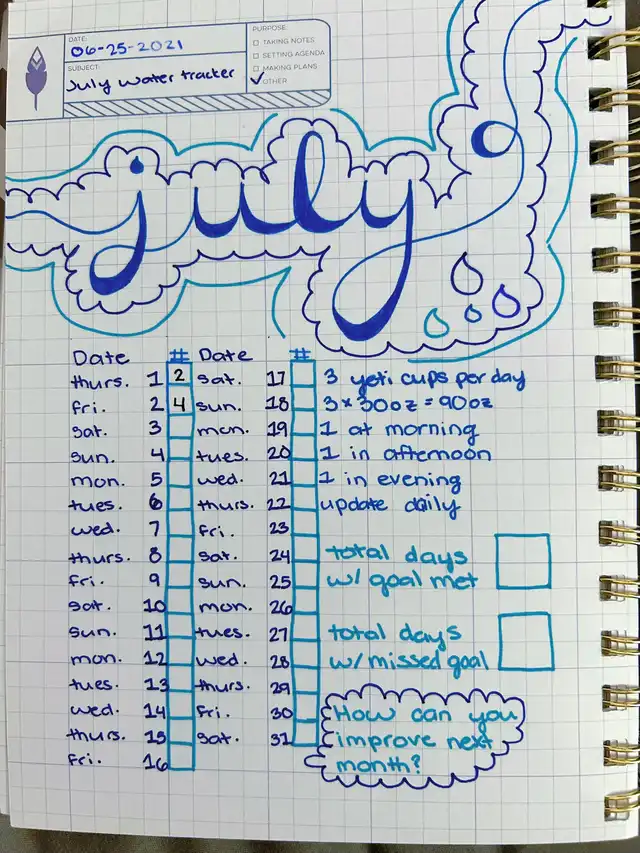 DATE:
06-25-2021
SUBJECT:
July water tracker
PURPOSE:
TAKING NOTES
SETTING AGENDA
MAKING PLANS
OTHER
july
Date # Date #
thurs. 1 2 sat. 17 3 yeti cups per day
fri. 2 4 sun. 18 3 x 30oz = 90oz
sat. 3 mon. 19 1 at morning
sun. 4 tues. 20 1 in afternoon
mon. 5 wed. 21 1 in evening
tues. 6 thurs. 22 update daily
wed. 7 fri. 23
thurs. 8 sat. 24 total days
fri. 9 sun. 25 w/ goal met
sat. 10 mon. 26
sun. 11 tues. 27 total days
mon. 12 wed. 28 w/ missed goal
tues. 13 thurs. 29
wed. 14 fri. 30 How can you
thurs. 15 sat. 31 improve next
fri. 16 month?